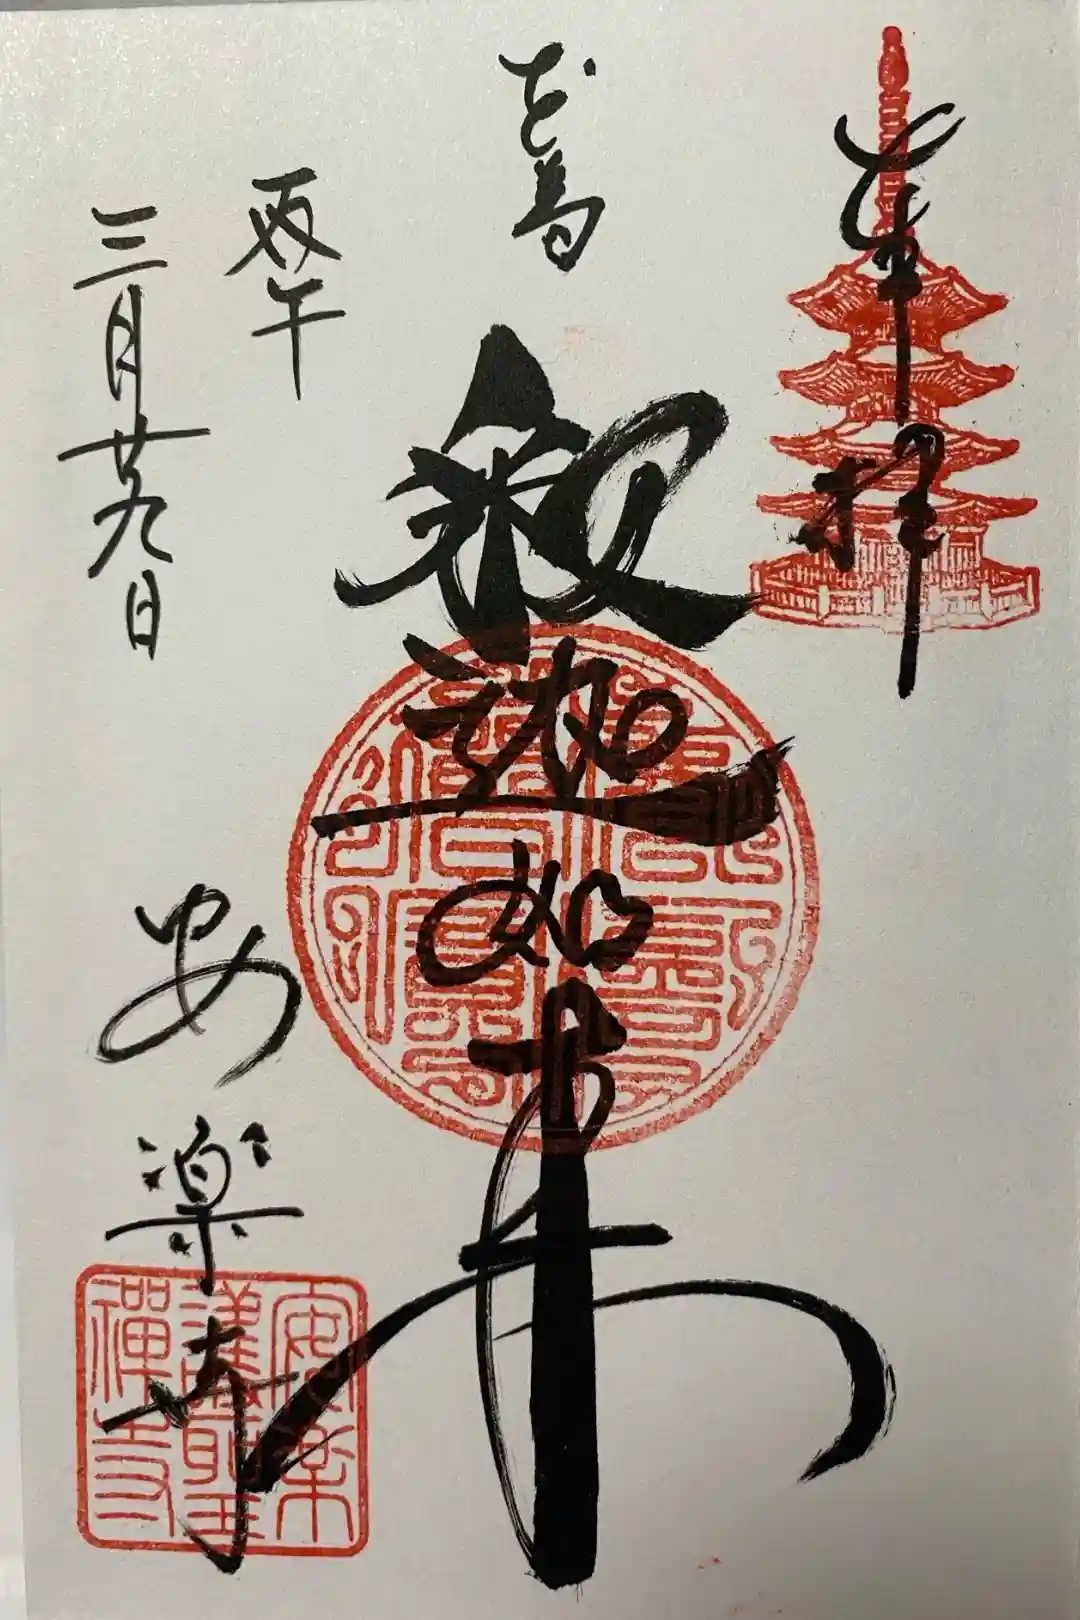 奉拝
釈迦如来
丙午
三月廿九日
安楽寺
安樂
護聖
禪寺